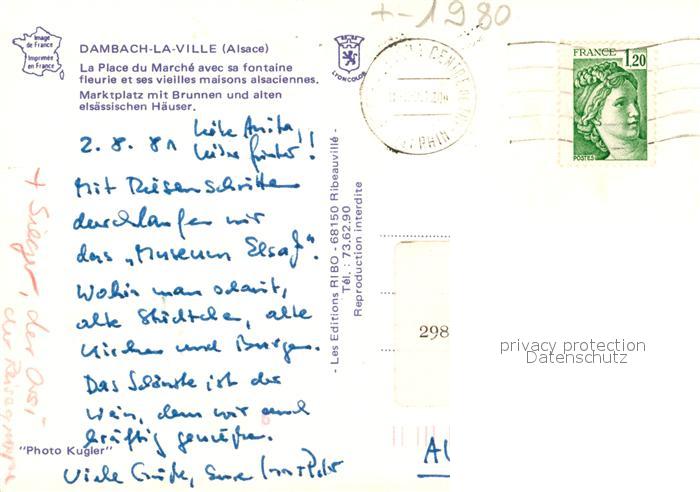 +-1980
Image de France
Imprimée en France
DAMBACH-LA-VILLE (Alsace)
La Place du Marché avec sa fontaine
fleurie et ses vieilles maisons alsaciennes.
Marktplatz mit Brunnen und alten
elsässischen Häuser.
LYONCOLOR
FRANCE 1,20
POSTES
2.8.81 Liebe Anita,
Mit Riesenschritten
durchlaufen wir
das „Museum Elsaß“.
Wohin man schaut,
alte Städtchen, alte
Kirchen und Burgen.
Das Schönste ist der
Wein, dem wir auch
kräftig genießen.
Viele Grüße, Eure
"Photo Kugler"
- Les Editions RIBO - 68150 Ribeauvillé -
Tél. : 73.62.90
Reproduction interdite
298
privacy protection
Datenschutz